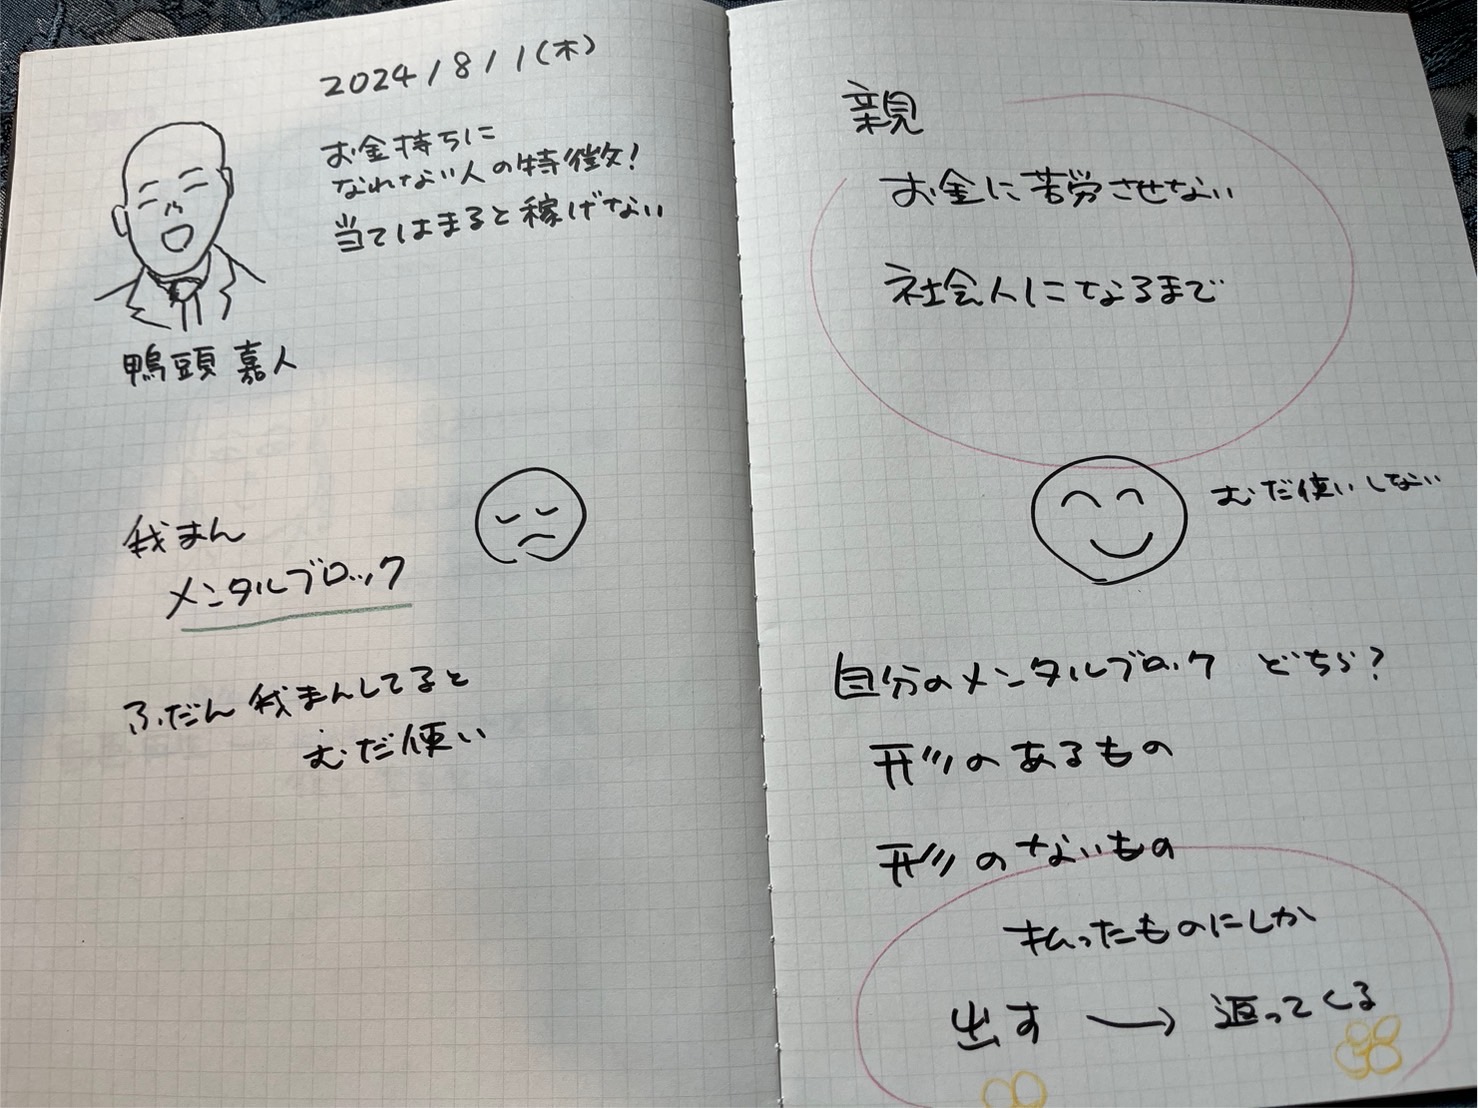 2024/8/1(木)
お金持ちに
なれない人の特徴!
当てはまると稼げない
鴨頭 嘉人
我まん
メンタルブロック
ふだん我まんしてると
むだ使い
親
お金に苦労させない
社会人になるまで
むだ使いしない
自分のメンタルブロック どちら?
形のあるもの
形のないもの
払ったものにしか
出す → 返ってくる